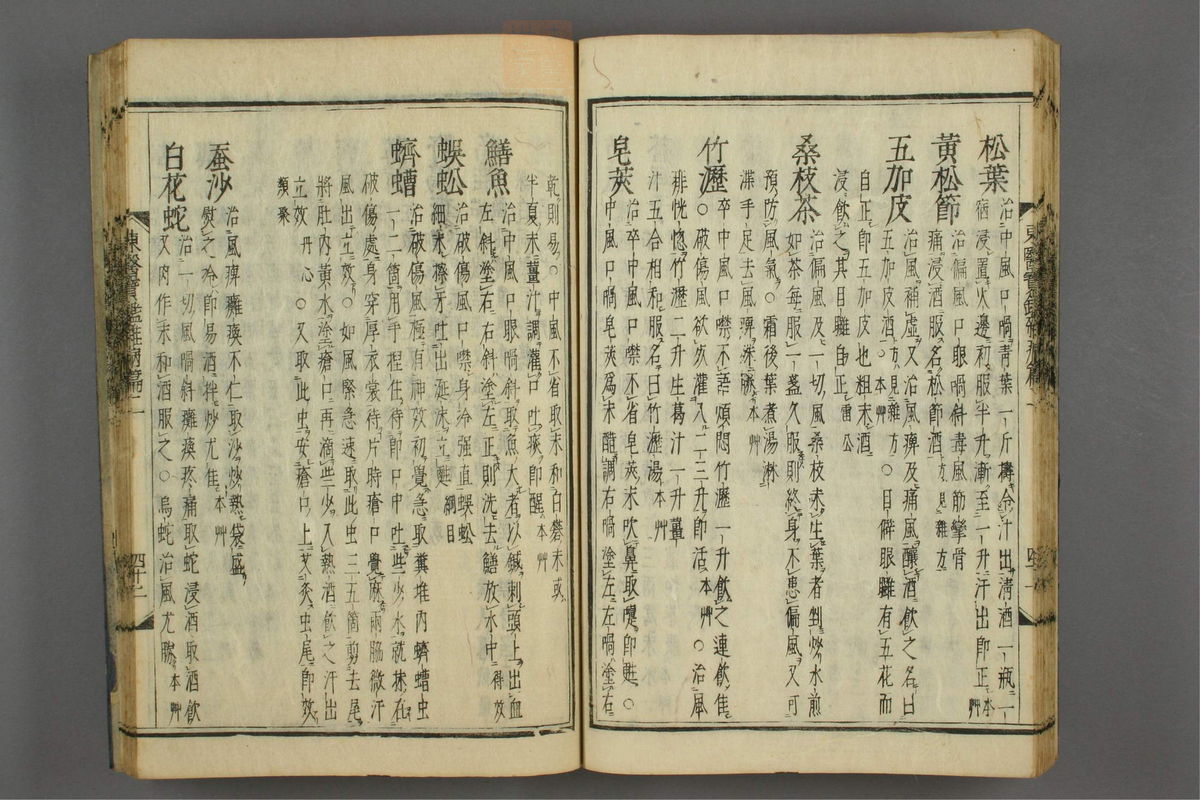 松葉 治中風口喎青葉一斤擣令汁出淸酒一瓶一
宿浸置火邊初服半升漸至一升汗出卽正 本艸
黃松節 治偏風口眼喎斜毒風筋攣骨
痛浸酒服名松節酒 方見雜方
五加皮 治風補虛又治風痺及痛風釀酒飮之名曰
五加皮酒 方見雜方 本艸 ○目僻眼䁾有五花而
自正卽五加皮也粗末酒
浸飮之其目䁾自正 雷公
桑枝茶 治偏風及一切風桑枝未生葉者剉炒水煎
如茶每服一盞久服則終身不患偏風又可
預防風氣○霜後葉煮湯淋
渫手足去風痺殊勝 本艸
竹瀝 卒中風口噤不語煩悶竹瀝一升飮之連飮佳
○破傷風欲灰灌入二三升卽活 本艸 ○治風
痱恍惚竹瀝二升生葛汁一升薑
汁五合相和服名曰竹瀝湯 本艸
皂莢 治卒中風口噤不省皂莢末吹鼻取嚔卽甦○
中風口喎皂莢爲末醋調右喎塗左左喎塗右
東醫寶鑑雜病篇二
四十一
乾則易○中風不省取末和白礬末或
半夏末薑汁調灌口吐痰卽醒 本艸
鱔魚 治中風口眼喎斜取魚大者以鍼刺頭上出血
左斜塗右右斜塗左正則洗去鱔放水中 得效
蜈蚣 治破傷風口噤身冷强直蜈蚣
細末擦牙吐出涎沫立甦 綱目
蠐螬 治破傷風極有神效初覺急取糞堆內蠐螬虫
一二箇用手揑住待卽口中吐些少水就抹在
破傷處身穿厚衣裳待片時瘡口覺麻兩脇微汗
風出立效○如風緊急速取此虫三五箇剪去尾
將肚內黃水塗瘡口再滴些少入熱酒飮之汗出
立效 丹心 ○又取此虫安瘡口上艾灸虫尾卽效
類聚
蚕沙 治風痺癱瘓不仁取沙炒熱袋盛
熨之冷卽易酒拌炒尤佳 本艸
白花蛇 治一切風喎斜癱瘓疼痛取蛇浸酒取酒飮
又肉作末和酒服之○烏蛇治風尤勝 本艸
東醫寶鑑雜病篇二
四十二